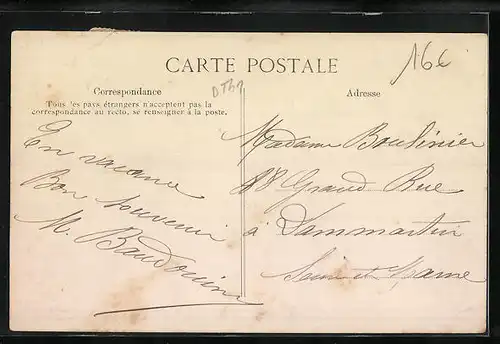 CARTE POSTALE
16€
DTB1
Correspondance
Tous les pays étrangers n'acceptent pas la
correspondance au recto, se renseigner à la poste.
En vacance
Bon souvenir
M. Baudouin
Adresse
Madame Boulinier
88 Grand Rue
à Dammartin
Seine et Marne